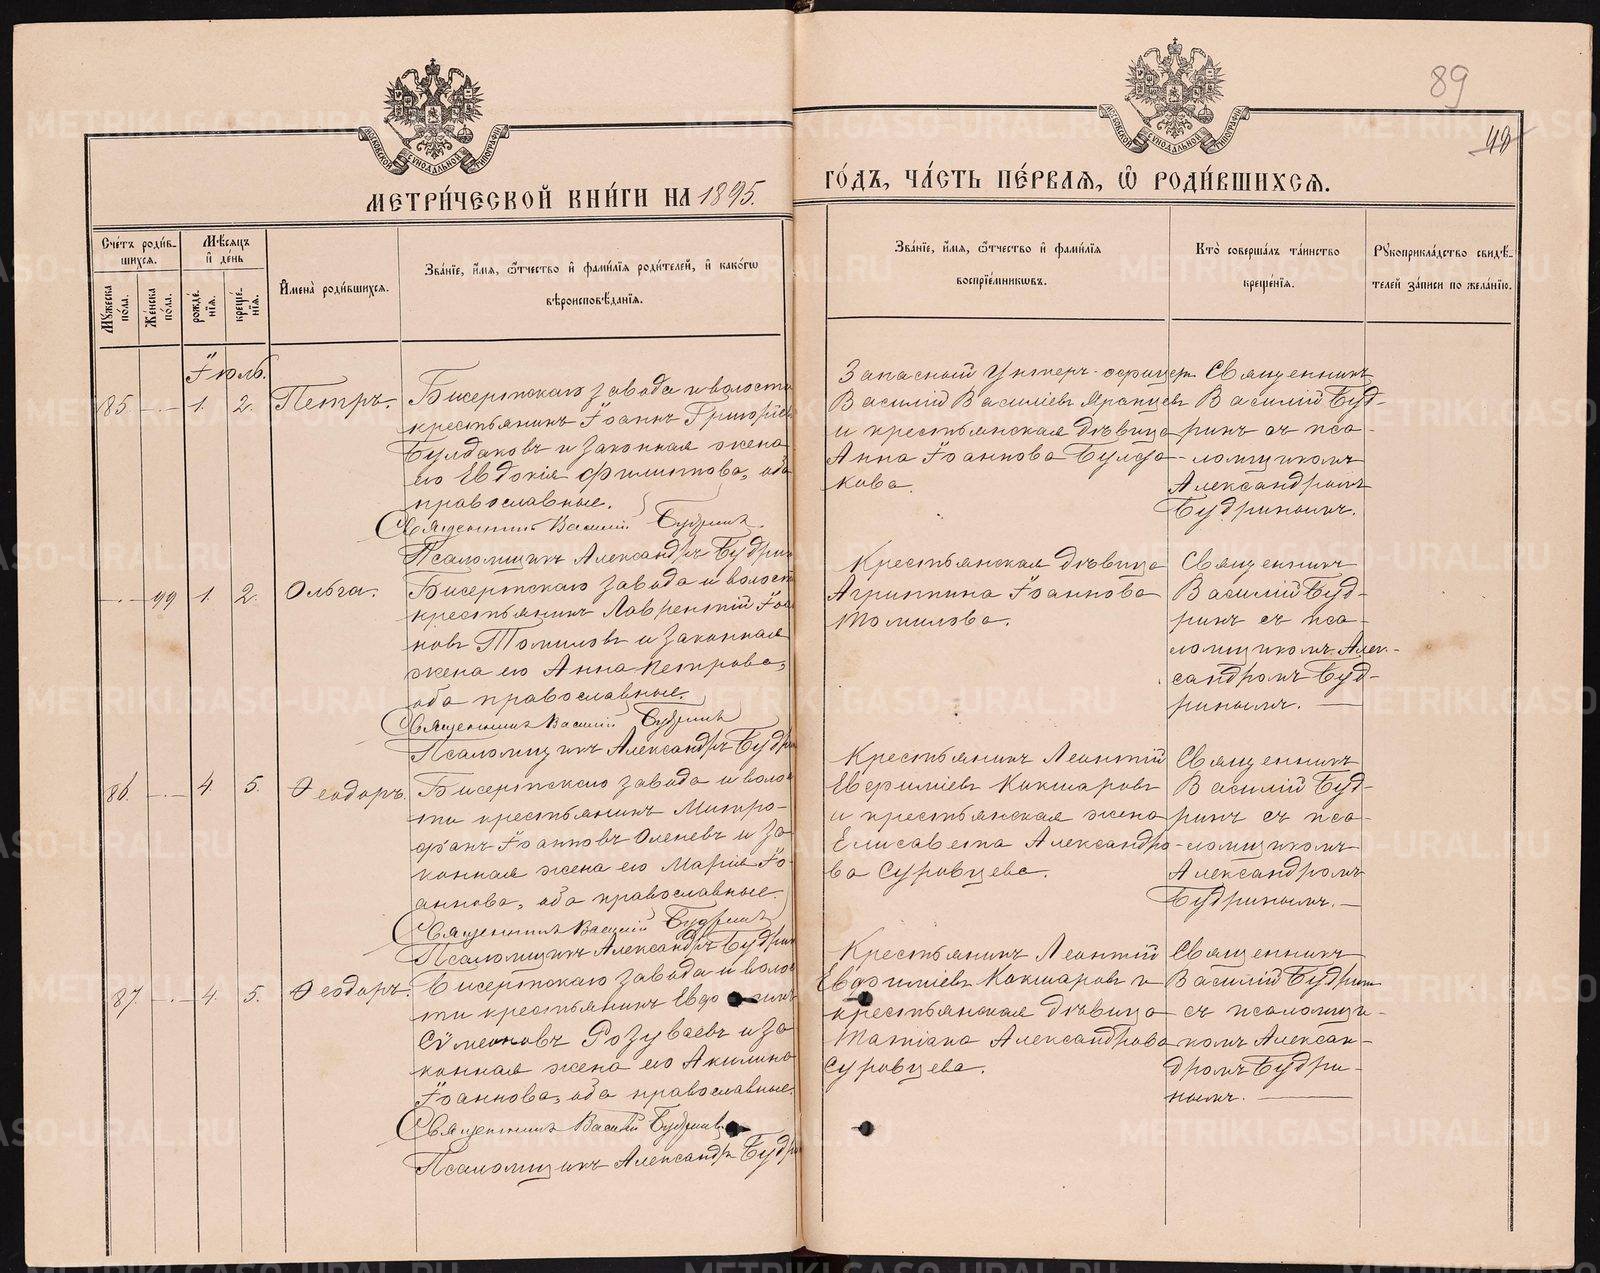 89
40
МЕТРИ́ЧЕСКОЙ КНИ́ГИ НА 1895.
ГО́ДЪ, ЧА́СТЬ ПЕ́РВАЯ, Ѽ РОДИ́ВШИХСЯ.
Сче́тъ роди́в-
шихся.
Мꙋ́жеска по́ла.
Же́нска по́ла.
Мѣ́сяцъ
и҆ де́нь
рожде́нїя.
креще́нїя.
И҆мена̀ роди́вшихся.
Зва́нїе, и҆́мя, ѻ҆́тчество и҆ фами́лїя роди́телей, и҆ како́гѡ
вѣроисповѣ́данїя.
Зва́нїе, и҆́мя, ѻ҆́тчество и҆ фами́лїя
воспрїе́мникѡвъ.
Кто̀ соверша́лъ та́инство
креще́нїя.
Рꙋкоприкла́дство свидѣ́-
телей за́писи по жела́нїю.
Іюль.
85. —.— 1. 2. Петръ.
Бисертскаго завода и волости
крестьянинъ Іоаннъ Григоріев
Булдаковъ и законная жена
его Евдокія Филиппова, оба
православные.
Священникъ Василій Будринъ
Псаломщикъ Александръ Будрин
Запасный Унтеръ-офицеръ
Василій Василіевъ Мранцевъ
и крестьянская дѣвица
Анна Іоаннова Булда-
кова.
Священникъ
Василій Буд-
ринъ съ пса-
ломщикомъ
Александромъ
Будринымъ.
—.— 99 1. 2. Ольга.
Бисертскаго завода и волост
крестьянинъ Лаврентій Іоа
новъ Томиловъ и законная
жена его Анна Петрова,
оба православные.
Священникъ Василій Будринъ
Псаломщикъ Александръ Будри
Крестьянская дѣвица
Агриппина Іоаннова
Томилова.
Священникъ
Василій Буд-
ринъ съ пса-
ломщикомъ Алек-
сандромъ Буд-
ринымъ. —
86. —.— 4. 5. Ѳеодоръ.
Бисертскаго завода и волос
ти крестьянинъ Митро-
фанъ Іоанновъ Оленевъ и за
конная жена его Марія Іо
аннова, оба православные.
Священникъ Василій Будринъ
Псаломщикъ Александръ Будрин
Крестьянинъ Леонтій
Евфиміевъ Кокшаровъ
и крестьянская жена
Елисавета Александро-
ва Суровцева.
Священникъ
Василій Буд-
ринъ съ пса-
ломщикомъ
Александромъ
Будринымъ. —
87. —.— 4. 5. Ѳеодоръ.
Бисертскаго завода и волос
ти крестьянинъ Евдокимъ
Сѵмеоновъ Розуваевъ и за
конная жена его Акилина
Іоаннова, оба православные.
Священникъ Василій Будринъ
Псаломщикъ Александръ Будри
Крестьянинъ Леонтій
Евфиміевъ Кокшаровъ и
крестьянская дѣвица
Татіана Александрова
Суровцева.
Священникъ
Василій Будринъ
съ псаломщи-
комъ Алексан-
дромъ Будри-
нымъ. —